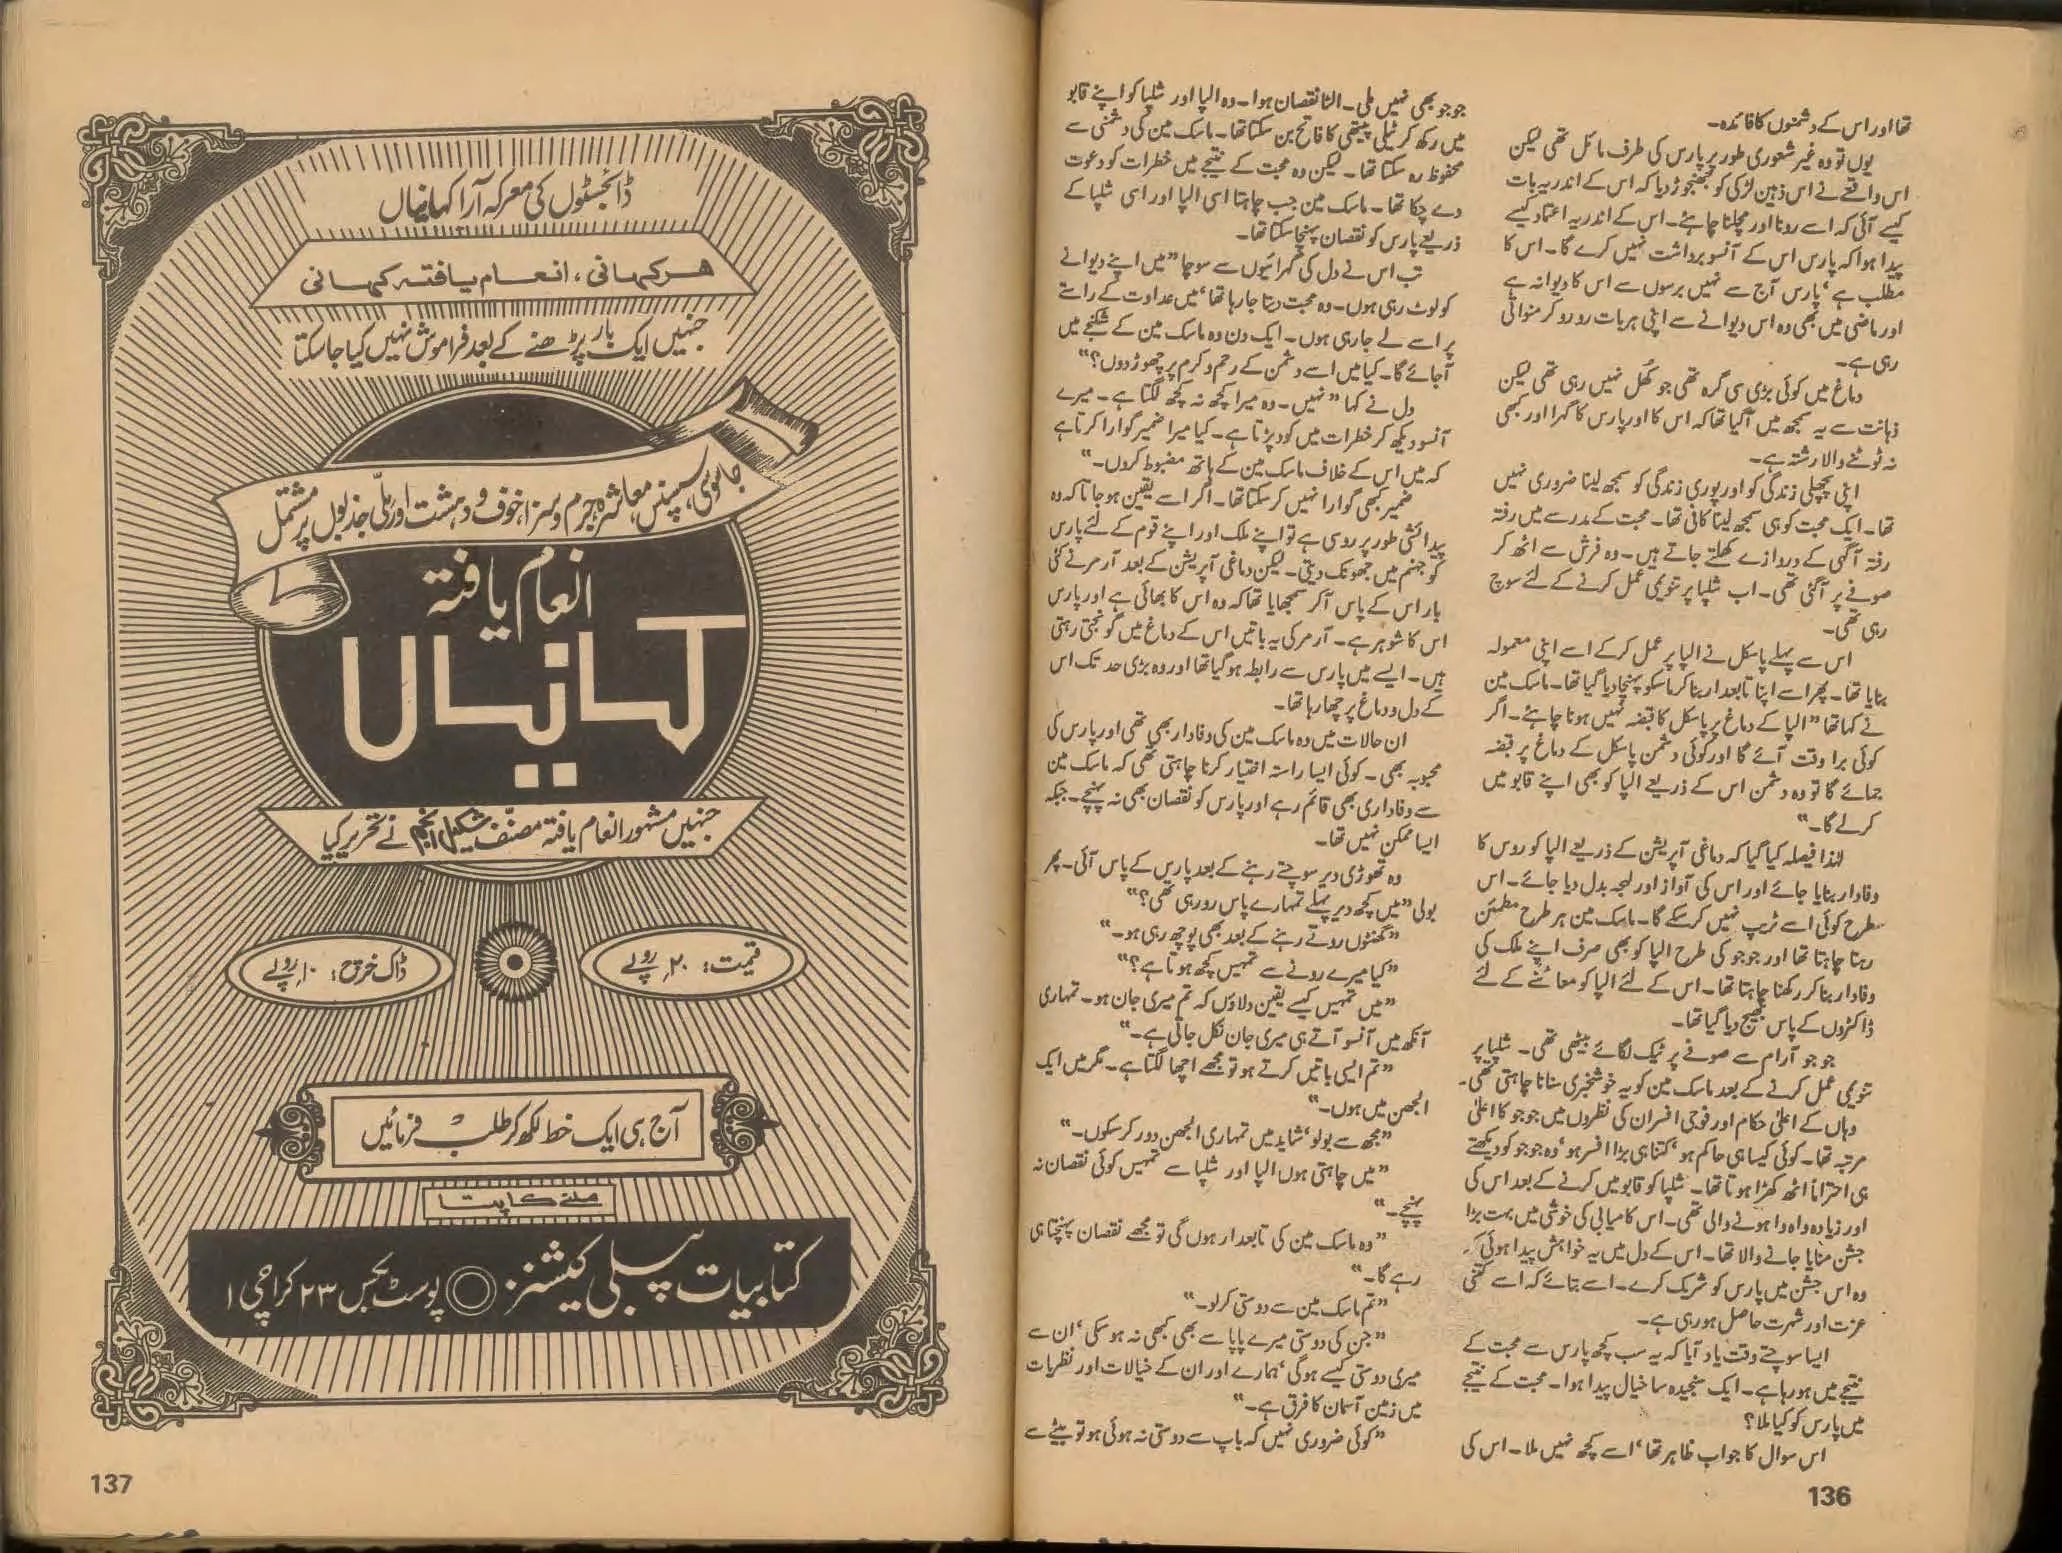 تھا اور اس کے دشمنوں کا فائدہ۔
یوں تو وہ غیر شعوری طور پر پارس کی طرف مائل تھی لیکن
اس واقعے نے اس ذہین لڑکی کو جھنجھوڑ دیا کہ اس کے اندر یہ بات
کیسے آئی کہ اسے رونا اور مچلنا چاہئے۔ اس کے اندر یہ اعتماد کیسے
پیدا ہوا کہ پارس اس کے آنسو برداشت نہیں کرے گا۔ اس کا
مطلب ہے ‘پارس آج سے نہیں برسوں سے اس کا دیوانہ ہے
اور ماضی میں بھی وہ اس دیوانے سے اپنی ہر بات رو رو کر منواتی
رہی ہے۔
دماغ میں کوئی بڑی سی گرہ تھی جو کُھل نہیں رہی تھی لیکن
ذہانت سے یہ سمجھ میں آگیا تھا کہ اس کا اور پارس کا گہرا اور کبھی
نہ ٹوٹنے والا رشتہ ہے۔
اپنی پچھلی زندگی کو اور پوری زندگی کو سمجھ لینا ضروری نہیں
تھا۔ ایک محبت کو ہی سمجھ لینا کافی تھا۔ محبت کے مدرسے میں رفتہ
رفتہ آگہی کے دروازے کھلتے جاتے ہیں۔ وہ فرش سے اٹھ کر
صوفے پر آگئی تھی۔ اب شلپا پر تنویمی عمل کرنے کے لئے سوچ
رہی تھی۔
اس سے پہلے پاسکل نے الپا پر عمل کرکے اسے اپنی معمولہ
بنایا تھا۔ پھر اسے اپنا تابعدار بنا کر ماسکو پہنچا دیا گیا تھا۔ ماسک مین
نے کہا تھا ”الپا کے دماغ پر پاسکل کا قبضہ نہیں ہونا چاہئے۔ اگر
کوئی برا وقت آئے گا اور کوئی دشمن پاسکل کے دماغ پر قبضہ
جمائے گا تو وہ دشمن اس کے ذریعے الپا کو بھی اپنے قابو میں
کرلے گا۔“
لہٰذا فیصلہ کیا گیا کہ دماغی آپریشن کے ذریعے الپا کو روس کا
وفادار بنایا جائے اور اس کی آواز اور لہجہ بدل دیا جائے۔ اس
طرح کوئی اسے ٹریپ نہیں کرسکے گا۔ ماسک مین ہر طرح مطمئن
رہنا چاہتا تھا اور جوجو کی طرح الپا کو بھی صرف اپنے ملک کی
وفادار بنا کر رکھنا چاہتا تھا۔ اس کے لئے الپا کو معائنے کے لئے
ڈاکٹروں کے پاس بھیج دیا گیا تھا۔
جوجو آرام سے صوفے پر ٹیک لگائے بیٹھی تھی۔ شلپا پر
تنویمی عمل کرنے کے بعد ماسک مین کو یہ خوشخبری سنانا چاہتی تھی۔
وہاں کے اعلیٰ حکام اور فوجی افسران کی نظروں میں جوجو کا اعلیٰ
مرتبہ تھا۔ کوئی کیسا ہی حاکم ہو ‘کتنا ہی بڑا افسر ہو ‘وہ جوجو کو دیکھتے
ہی احتراماً اٹھ کھڑا ہوتا تھا۔ شلپا کو قابو میں کرنے کے بعد اس کی
اور زیادہ واہ وا ہونے والی تھی۔ اس کامیابی کی خوشی میں بہت بڑا
جشن منایا جانے والا تھا۔ اس کے دل میں یہ خواہش پیدا ہوئی کہ
وہ اس جشن میں پارس کو شریک کرے۔ اسے بتائے کہ اسے کتنی
عزت اور شہرت حاصل ہو رہی ہے۔
ایسا سوچتے وقت یاد آیا کہ یہ سب کچھ پارس سے محبت کے
نتیجے میں ہو رہا ہے۔ ایک سنجیدہ سا خیال پیدا ہوا۔ محبت کے نتیجے
میں پارس کو کیا ملا؟
اس سوال کا جواب ظاہر تھا ‘اسے کچھ نہیں ملا۔ اس کی
جوجو بھی نہیں ملی۔ الٹا نقصان ہوا۔ وہ الپا اور شلپا کو اپنے قابو
میں رکھ کر ٹیلی پیتھی کا فاتح بن سکتا تھا۔ ماسک مین کی دشمنی سے
محفوظ رہ سکتا تھا۔ لیکن وہ محبت کے نتیجے میں خطرات کو دعوت
دے چکا تھا۔ ماسک مین جب چاہتا اسی الپا اور اسی شلپا کے
ذریعے پارس کو نقصان پہنچا سکتا تھا۔
تب اس نے دل کی گہرائیوں سے سوچا ”میں اپنے دیوانے
کو لوٹ رہی ہوں۔ وہ محبت دیتا جا رہا تھا ‘میں عداوت کے راستے
پر اسے لے جارہی ہوں۔ ایک دن وہ ماسک مین کے شکنجے میں
آجائے گا۔ کیا میں اسے دشمن کے رحم و کرم پر چھوڑ دوں؟“
دل نے کہا ”نہیں۔ وہ میرا کچھ نہ کچھ لگتا ہے۔ میرے
آنسو دیکھ کر خطرات میں کود پڑتا ہے۔ کیا میرا ضمیر گوارا کرتا ہے
کہ میں اس کے خلاف ماسک مین کے ہاتھ مضبوط کروں۔“
ضمیر کبھی گوارا نہیں کرسکتا تھا۔ اگر اسے یقین ہو جاتا کہ وہ
پیدائشی طور پر روسی ہے تو اپنے ملک اور اپنے قوم کے لئے پارس
کو جہنم میں جھونک دیتی۔ لیکن دماغی آپریشن کے بعد آرمر نے کئی
بار اس کے پاس آکر سمجھایا تھا کہ وہ اس کا بھائی ہے اور پارس
اس کا شوہر ہے۔ آرمر کی یہ باتیں اس کے دماغ میں گونجتی رہتی
ہیں۔ ایسے میں پارس سے رابطہ ہوگیا تھا اور وہ بڑی حد تک اس
کے دل و دماغ پر چھا رہا تھا۔
ان حالات میں وہ ماسک مین کی وفادار بھی تھی اور پارس کی
محبوبہ بھی۔ کوئی ایسا راستہ اختیار کرنا چاہتی تھی کہ ماسک مین
سے وفاداری بھی قائم رہے اور پارس کو نقصان بھی نہ پہنچے۔ جبکہ
ایسا ممکن نہیں تھا۔
وہ تھوڑی دیر سوچتے رہنے کے بعد پارس کے پاس آئی۔ پھر
بولی ”میں کچھ دیر پہلے تمہارے پاس رو رہی تھی؟“
”گھنٹوں روتے رہنے کے بعد بھی پوچھ رہی ہو۔“
”کیا میرے رونے سے تمہیں کچھ ہوتا ہے؟“
”میں تمہیں کیسے یقین دلاؤں کہ تم میری جان ہو۔ تمہاری
آنکھ میں آنسو آتے ہی میری جان نکل جاتی ہے۔“
”تم ایسی باتیں کرتے ہو تو مجھے اچھا لگتا ہے۔ مگر میں ایک
الجھن میں ہوں۔“
”مجھ سے بولو ‘شاید میں تمہاری الجھن دور کرسکوں۔“
”میں چاہتی ہوں الپا اور شلپا سے تمہیں کوئی نقصان نہ
پہنچے۔“
”وہ ماسک مین کی تابعدار ہوں گی تو مجھے نقصان پہنچتا ہی
رہے گا۔“
”تم ماسک مین سے دوستی کرلو۔“
”جن کی دوستی میرے پاپا سے بھی کبھی نہ ہو سکی ‘ان سے
میری دوستی کیسے ہوگی ‘ہمارے اور ان کے خیالات اور نظریات
میں زمین آسمان کا فرق ہے۔“
”کوئی ضروری نہیں کہ باپ سے دوستی نہ ہوئی ہو تو بیٹے سے
136
ڈائجسٹوں کی معرکہ آرا کہانیاں
ہر کہانی، انعام یافتہ کہانی
جنہیں ایک بار پڑھنے کے بعد فراموش نہیں کیا جاسکتا
جاسوسی، سسپنس، معاشرہ، جرم و سزا، خوف و دہشت اور ملّی جذبوں پر مشتمل
انعام یافتہ
کہانیاں
جنہیں مشہور انعام یافتہ مصنّف شکیل انجم نے تحریر کیا
قیمت: ۲۰ روپے
ڈاک خرچ: ۱۰ روپے
آج ہی ایک خط لکھ کر طلب فرمائیں
ملنے کا پتا
کتابیات پبلی کیشنز ○ پوسٹ بکس ۲۳ کراچی ۱
137